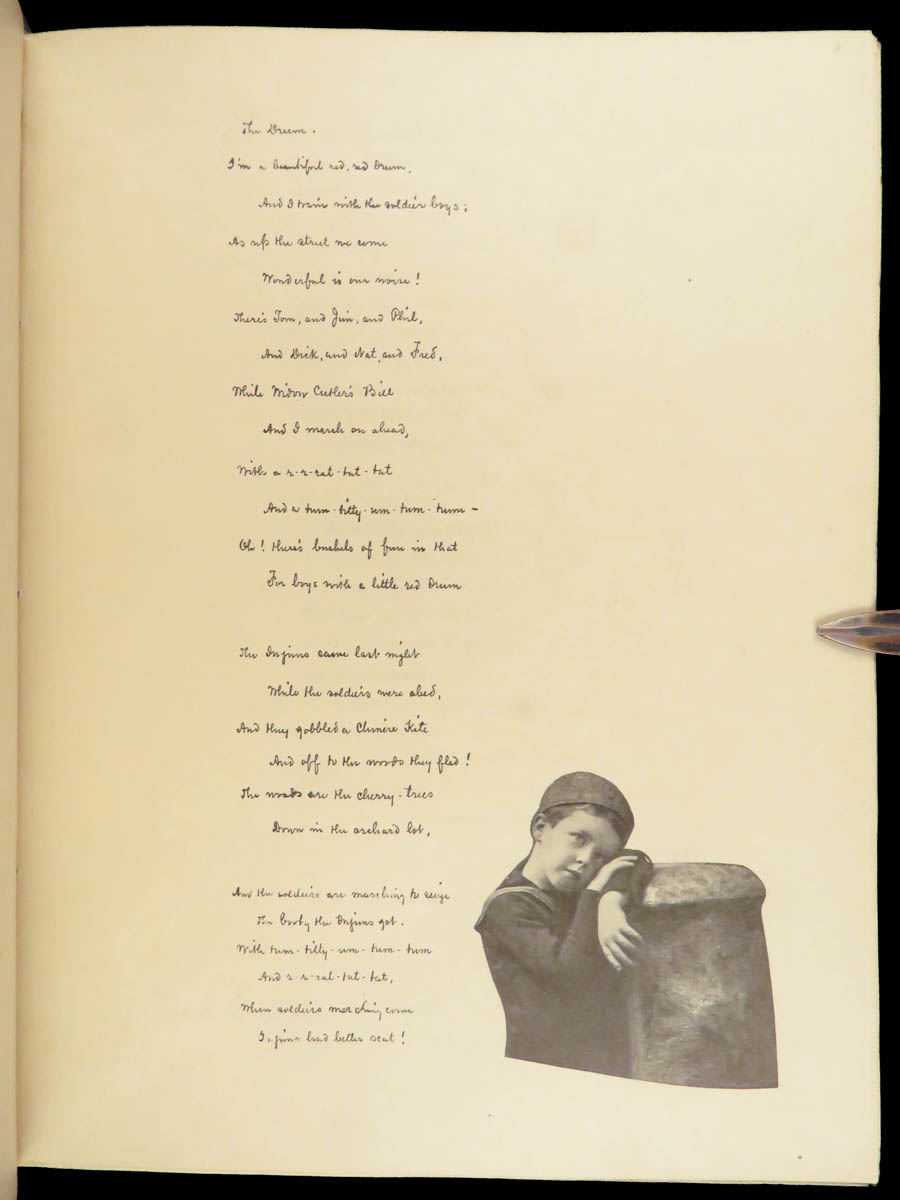 The Drum.
I'm a beautiful red, red drum,
And I train with the soldier boys;
As up the street we come
Wonderful is our noise!
There's Tom, and Jim, and Phil,
And Dick, and Nat, and Fred,
While Widow Cutler's Bill
And I march on ahead,
With a r-r-rat-tat-tat
And a tum-titty-um-tum-tum –
Oh! there's bushels of fun in that
For boys with a little red drum
The Injuns came last night
While the soldiers were abed,
And they gobbled a Chinese Kite
And off to the woods they fled!
The woods are the cherry-trees
Down in the orchard lot,
And the soldiers are marching to seize
The booty the Injuns got.
With tum-titty-um-tum-tum
And r-r-rat-tat-tat,
When soldiers marching come
Injuns had better scat!